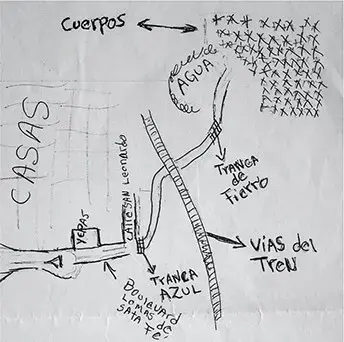 Cuerpos
AGUA
CASAS
CALLE SAN Leonardo
TRANCA
de
Fierro
YEPAS
VÍAS del
TREN
TRANCA
AZUL
BOULEVARD
Lomas de
SATA Fé